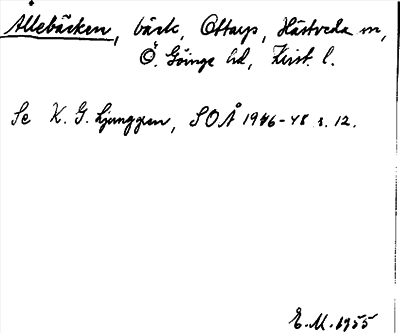 Ållebäcken, bäck, Ottarp, Hästveda sn,
Ö. Göinge hd, Krist. l.
Se K. G. Ljunggren, SOÅ 1946-48 s. 12.
E. M. 1955